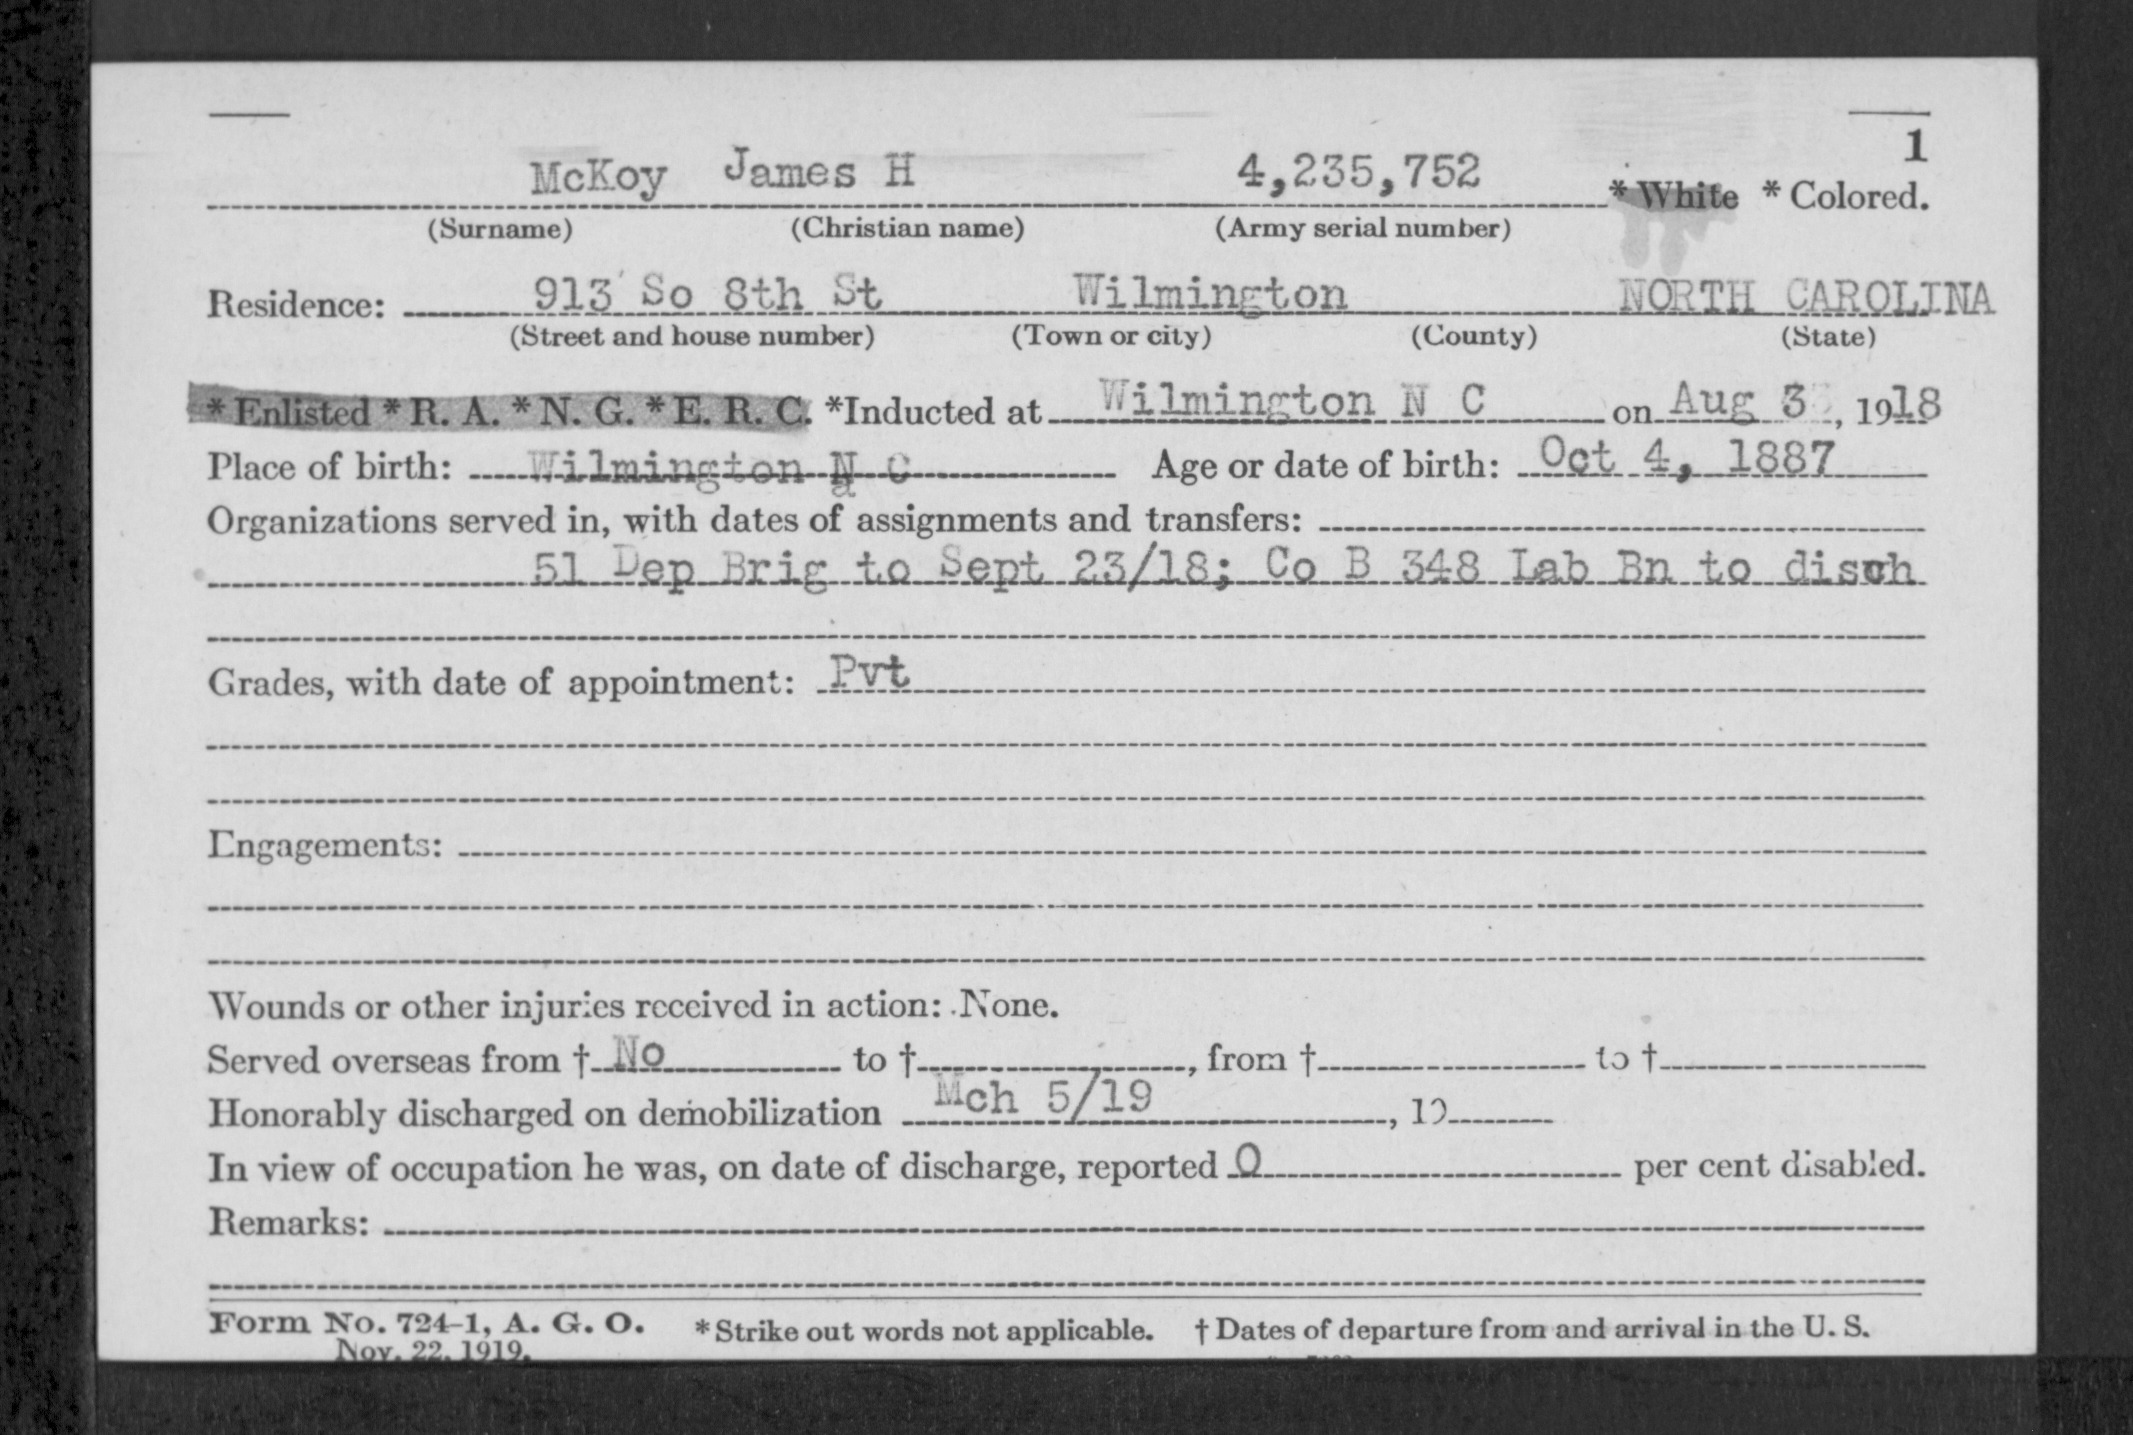 1
McKoy James H 4,235,752 * White * Colored.
(Surname) (Christian name) (Army serial number)
Residence: 913 So 8th St Wilmington NORTH CAROLINA
(Street and house number) (Town or city) (County) (State)
* Enlisted * R. A. * N. G. * E. R. C. *Inducted at Wilmington N C on Aug 3, 1918
Place of birth: Wilmington N C Age or date of birth: Oct 4, 1887
Organizations served in, with dates of assignments and transfers:
51 Dep Brig to Sept 23/18; Co B 348 Lab Bn to disch
Grades, with date of appointment: Pvt
Engagements:
Wounds or other injuries received in action: None.
Served overseas from † No to †, from † to †
Honorably discharged on demobilization Mch 5/19, 19
In view of occupation he was, on date of discharge, reported 0 per cent disabled.
Remarks:
Form No. 724-1, A. G. O. * Strike out words not applicable. † Dates of departure from and arrival in the U. S.
Nov. 22, 1919.